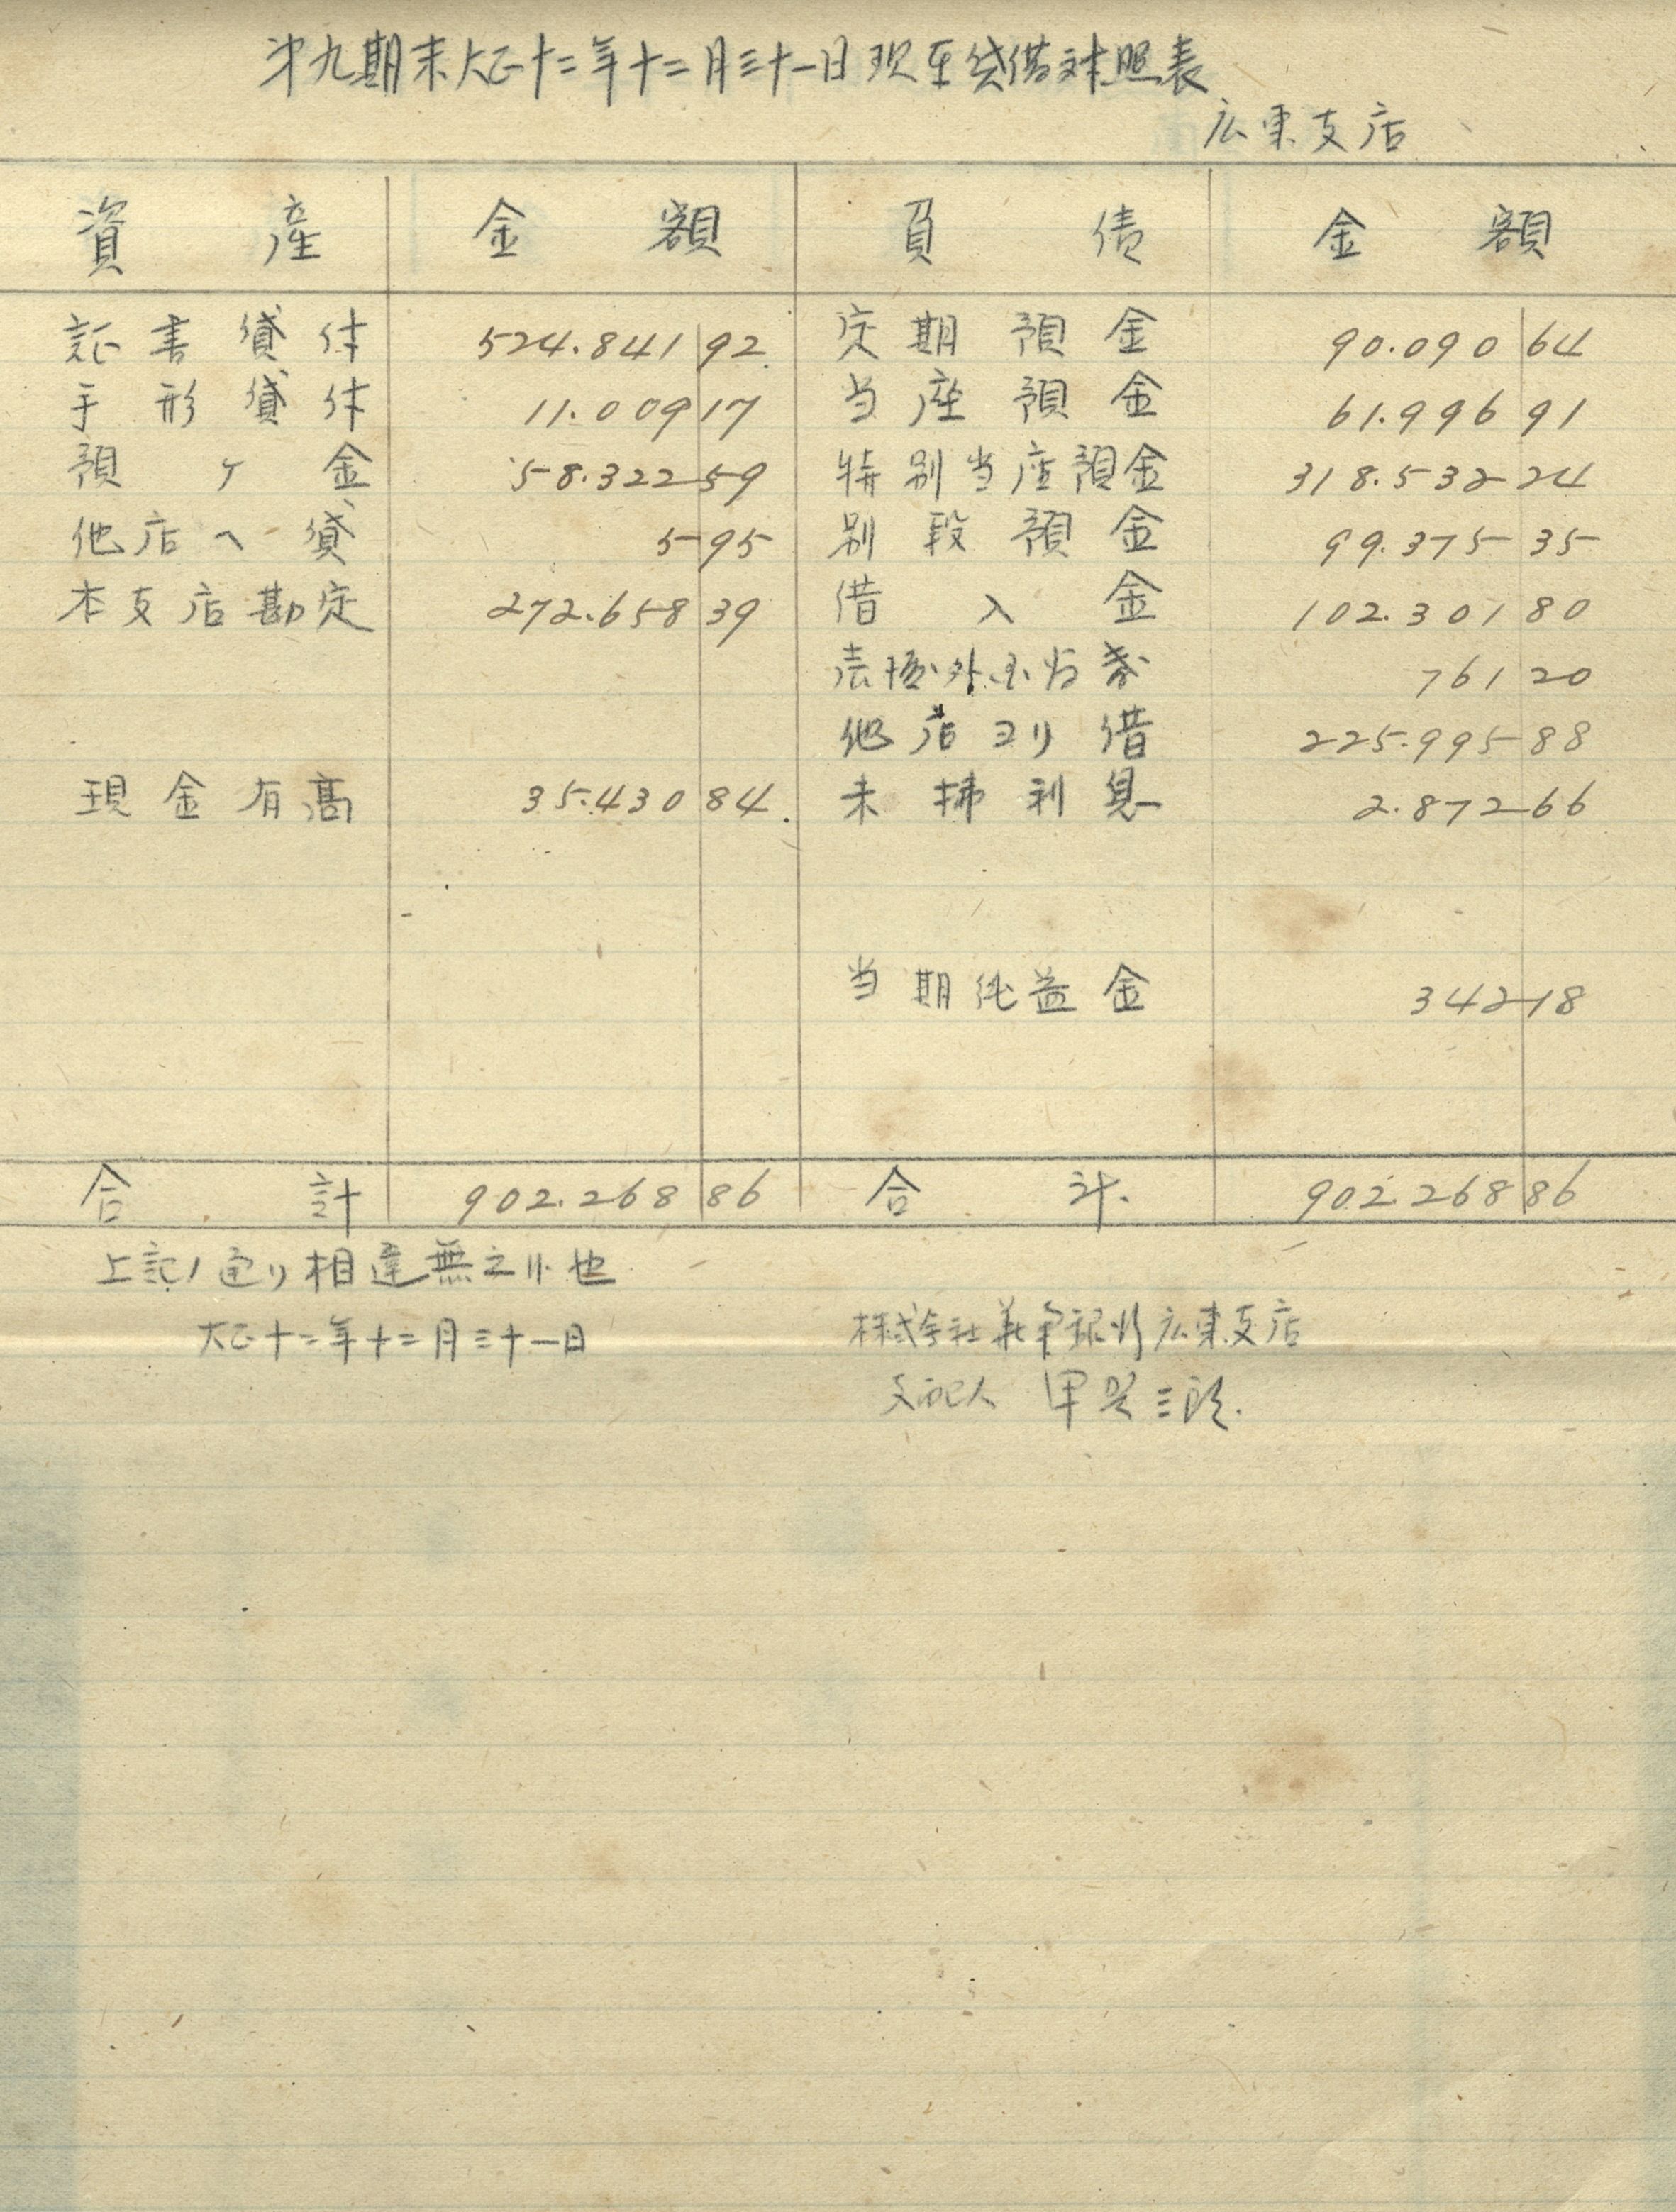 第九期末大正十二年十二月三十一日現在貸借対照表
広東支店
資産 金額 負債 金額
証書貸付 524.841 92 定期預金 90.090 64
手形貸付 11.009 17 当座預金 61.996 91
預ケ金 58.322 59 特別当座預金 318.532 24
他店へ貸 5 95 別段預金 99.375 35
本支店勘定 272.658 39 借入金 102.301 80
761 20
他店ヨリ借 225.995 88
現金有高 35.430 84 未払利息 2.872 66
当期純益金 342 18
合計 902.268 86 合計 902.268 86
上記ノ通リ相違無之候也
大正十二年十二月三十一日
株式会社華南銀行広東支店
支配人